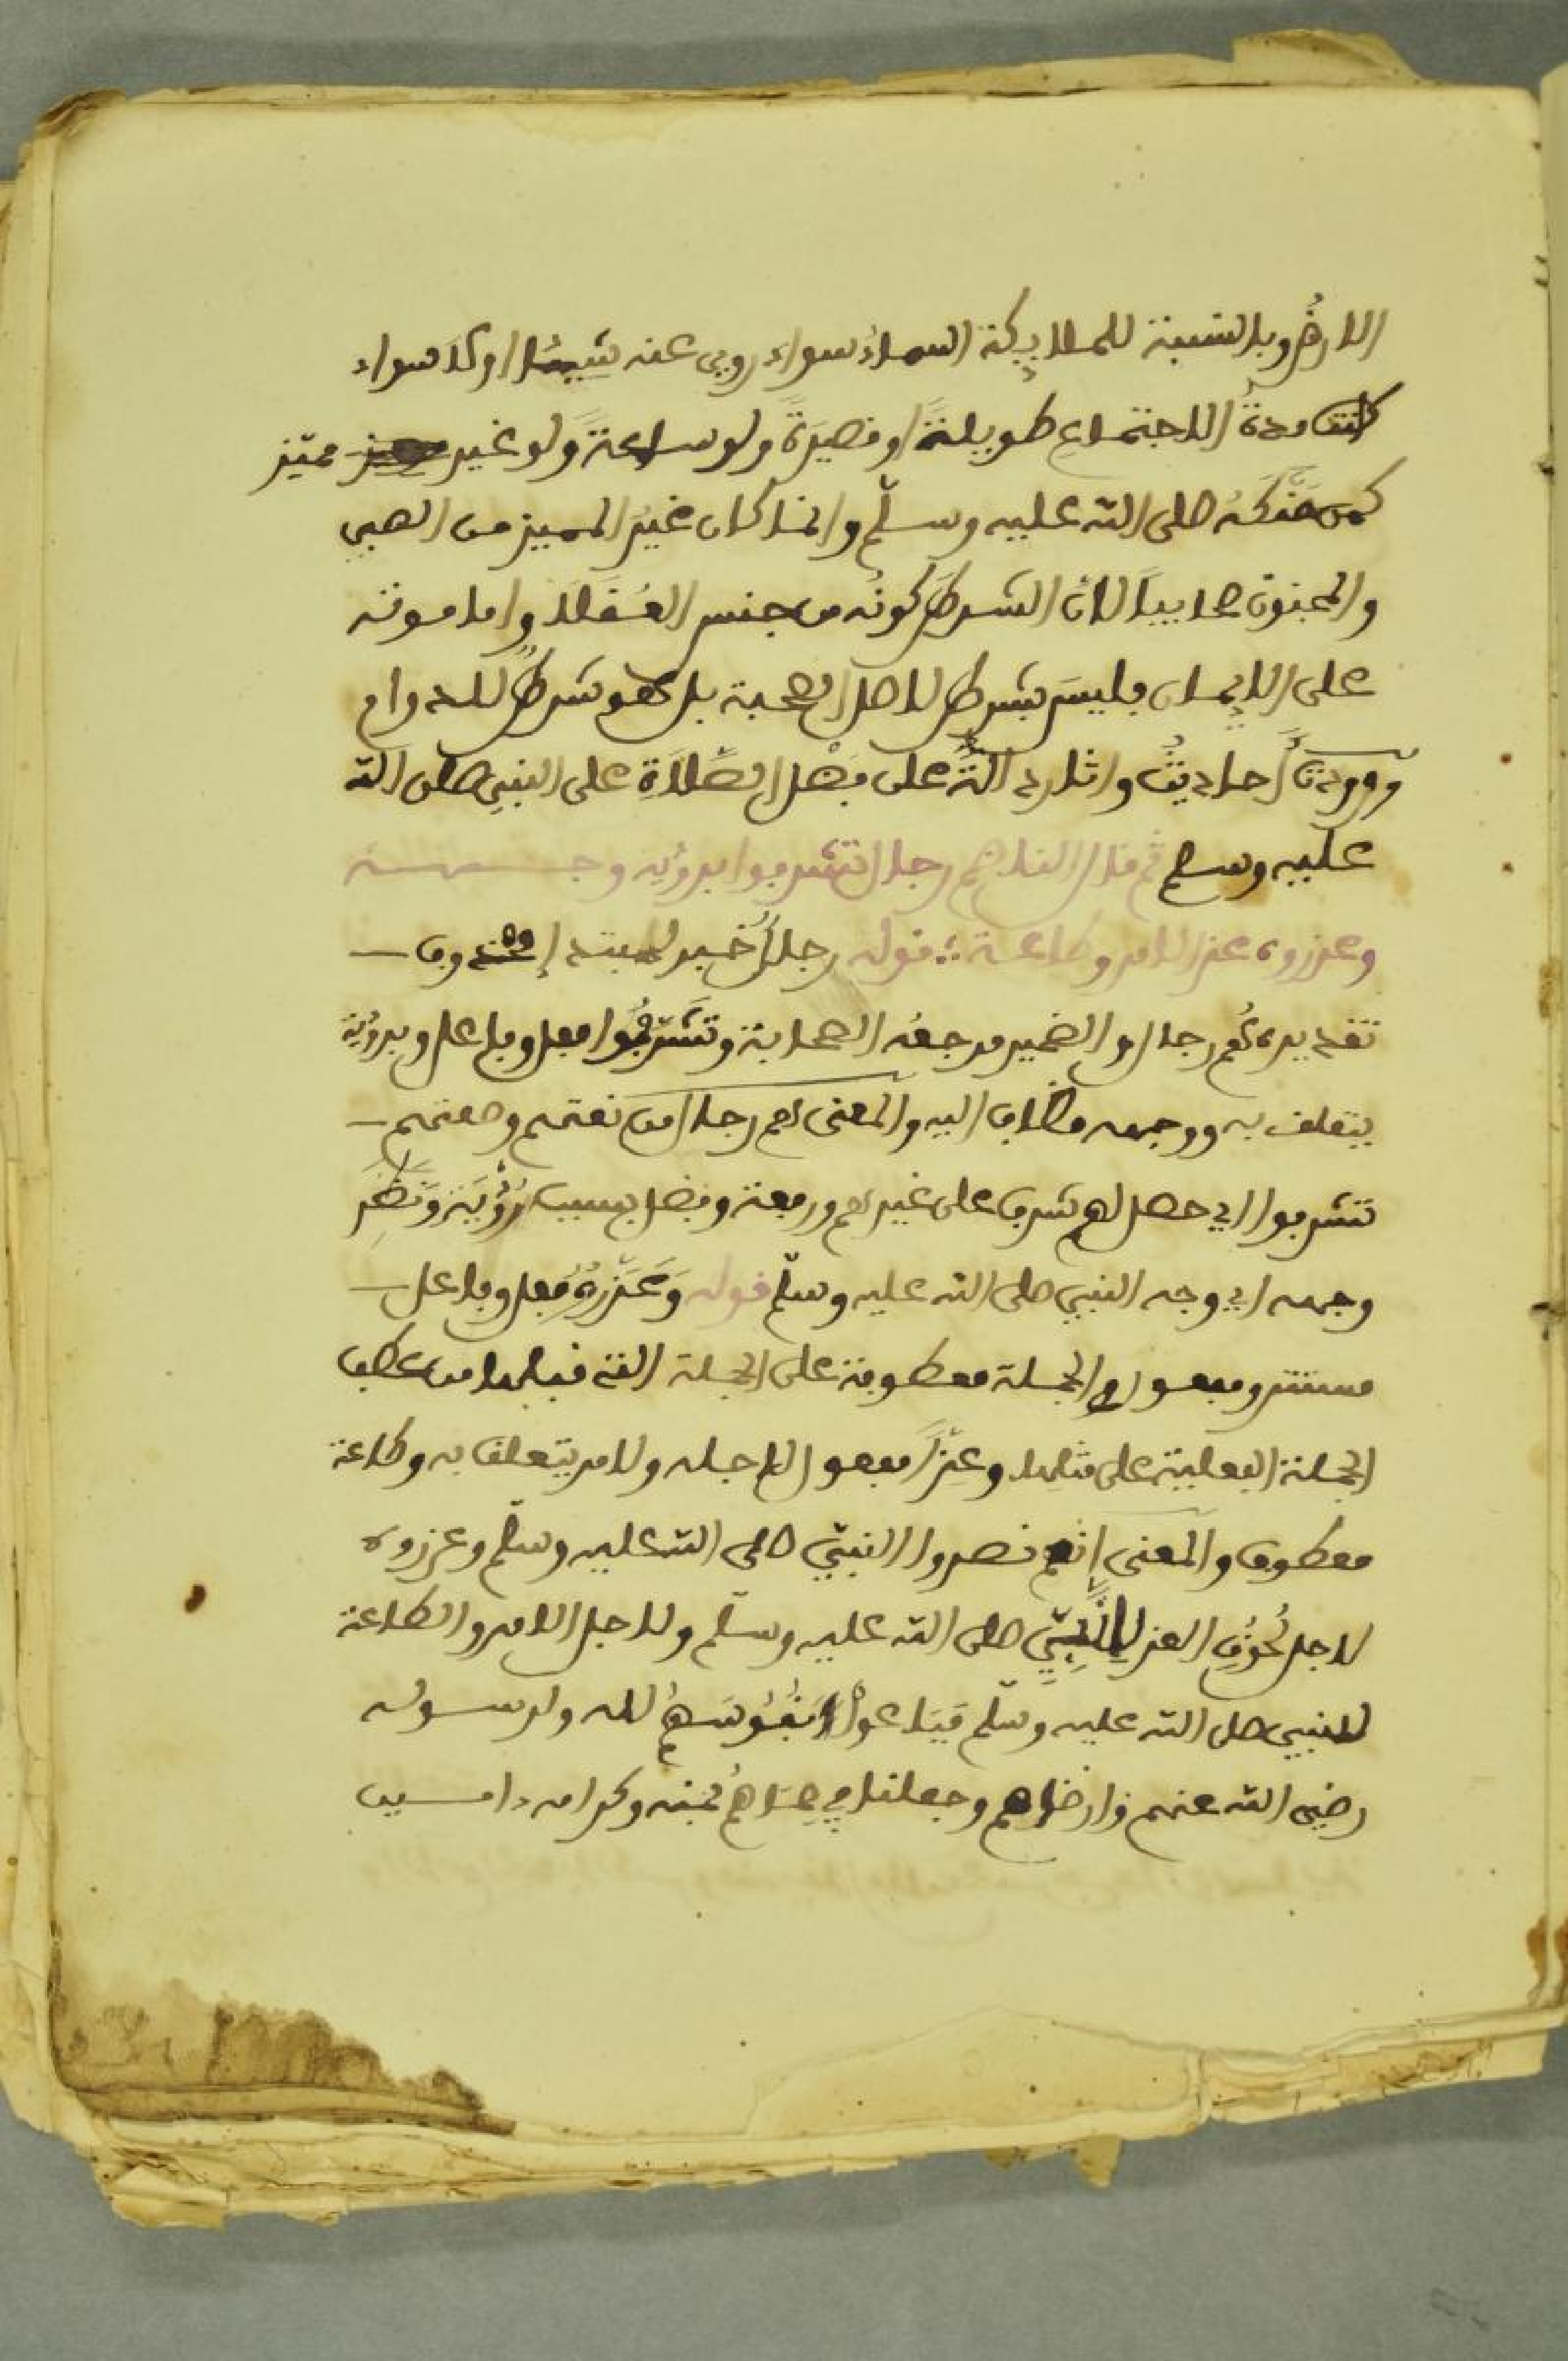 الارض وبالنسبة للملايكة السماء سواء روى عنه شيئا او لا سواء
كانت مدة الاجتماع طويلة او قصيرة ولو ساعة ولو غير مميز
كمن حنكه صلى الله عليه وسلم وانما كان غير المميز من الصبي
والمجنون صحابيا لان الشرط كونه من جنس العقلا واما موته
على الايمان فليس بشرط لاصل الصحبة بل هو شرط للدوام
ووردت احاديث واثار دالة على فضل الصلاة على النبي صلى الله
عليه وسلم ثم قال الناظم رجال تشرفوا برؤية وجهه
وعزروه عزا لامر وطاعة قوله رجال خبر لمبتدإ محذوف
تقديره هم رجال والضمير مرجعه الصحابة وتشرفوا فعل وفاعل وبرؤية
يتعلق به ووجهه مضاف اليه والمعنى هم رجال من نعتهم وصفتهم
تشرفوا اي حصل لهم شرف على غيرهم ورفعة وفضل بسبب رؤية ونظر
وجهه اي وجه النبي صلى الله عليه وسلم قوله وعزروه فعل وفاعل
مستتر ومفعول والجملة معطوفة على الجملة التي قبلها من عطف
الجملة الفعلية على مثلها وعزا مفعول لاجله ولامر يتعلق به وطاعة
معطوف والمعنى انهم نصروا النبي صلى الله عليه وسلم وعزروه
لاجل العز للنبي صلى الله عليه وسلم ولاجل الامر والطاعة
للنبي صلى الله عليه وسلم نفوسهم لله ولرسوله
رضي الله عنهم وارضاهم وجعلنا في حماهم بمنه وكرامه ءامين